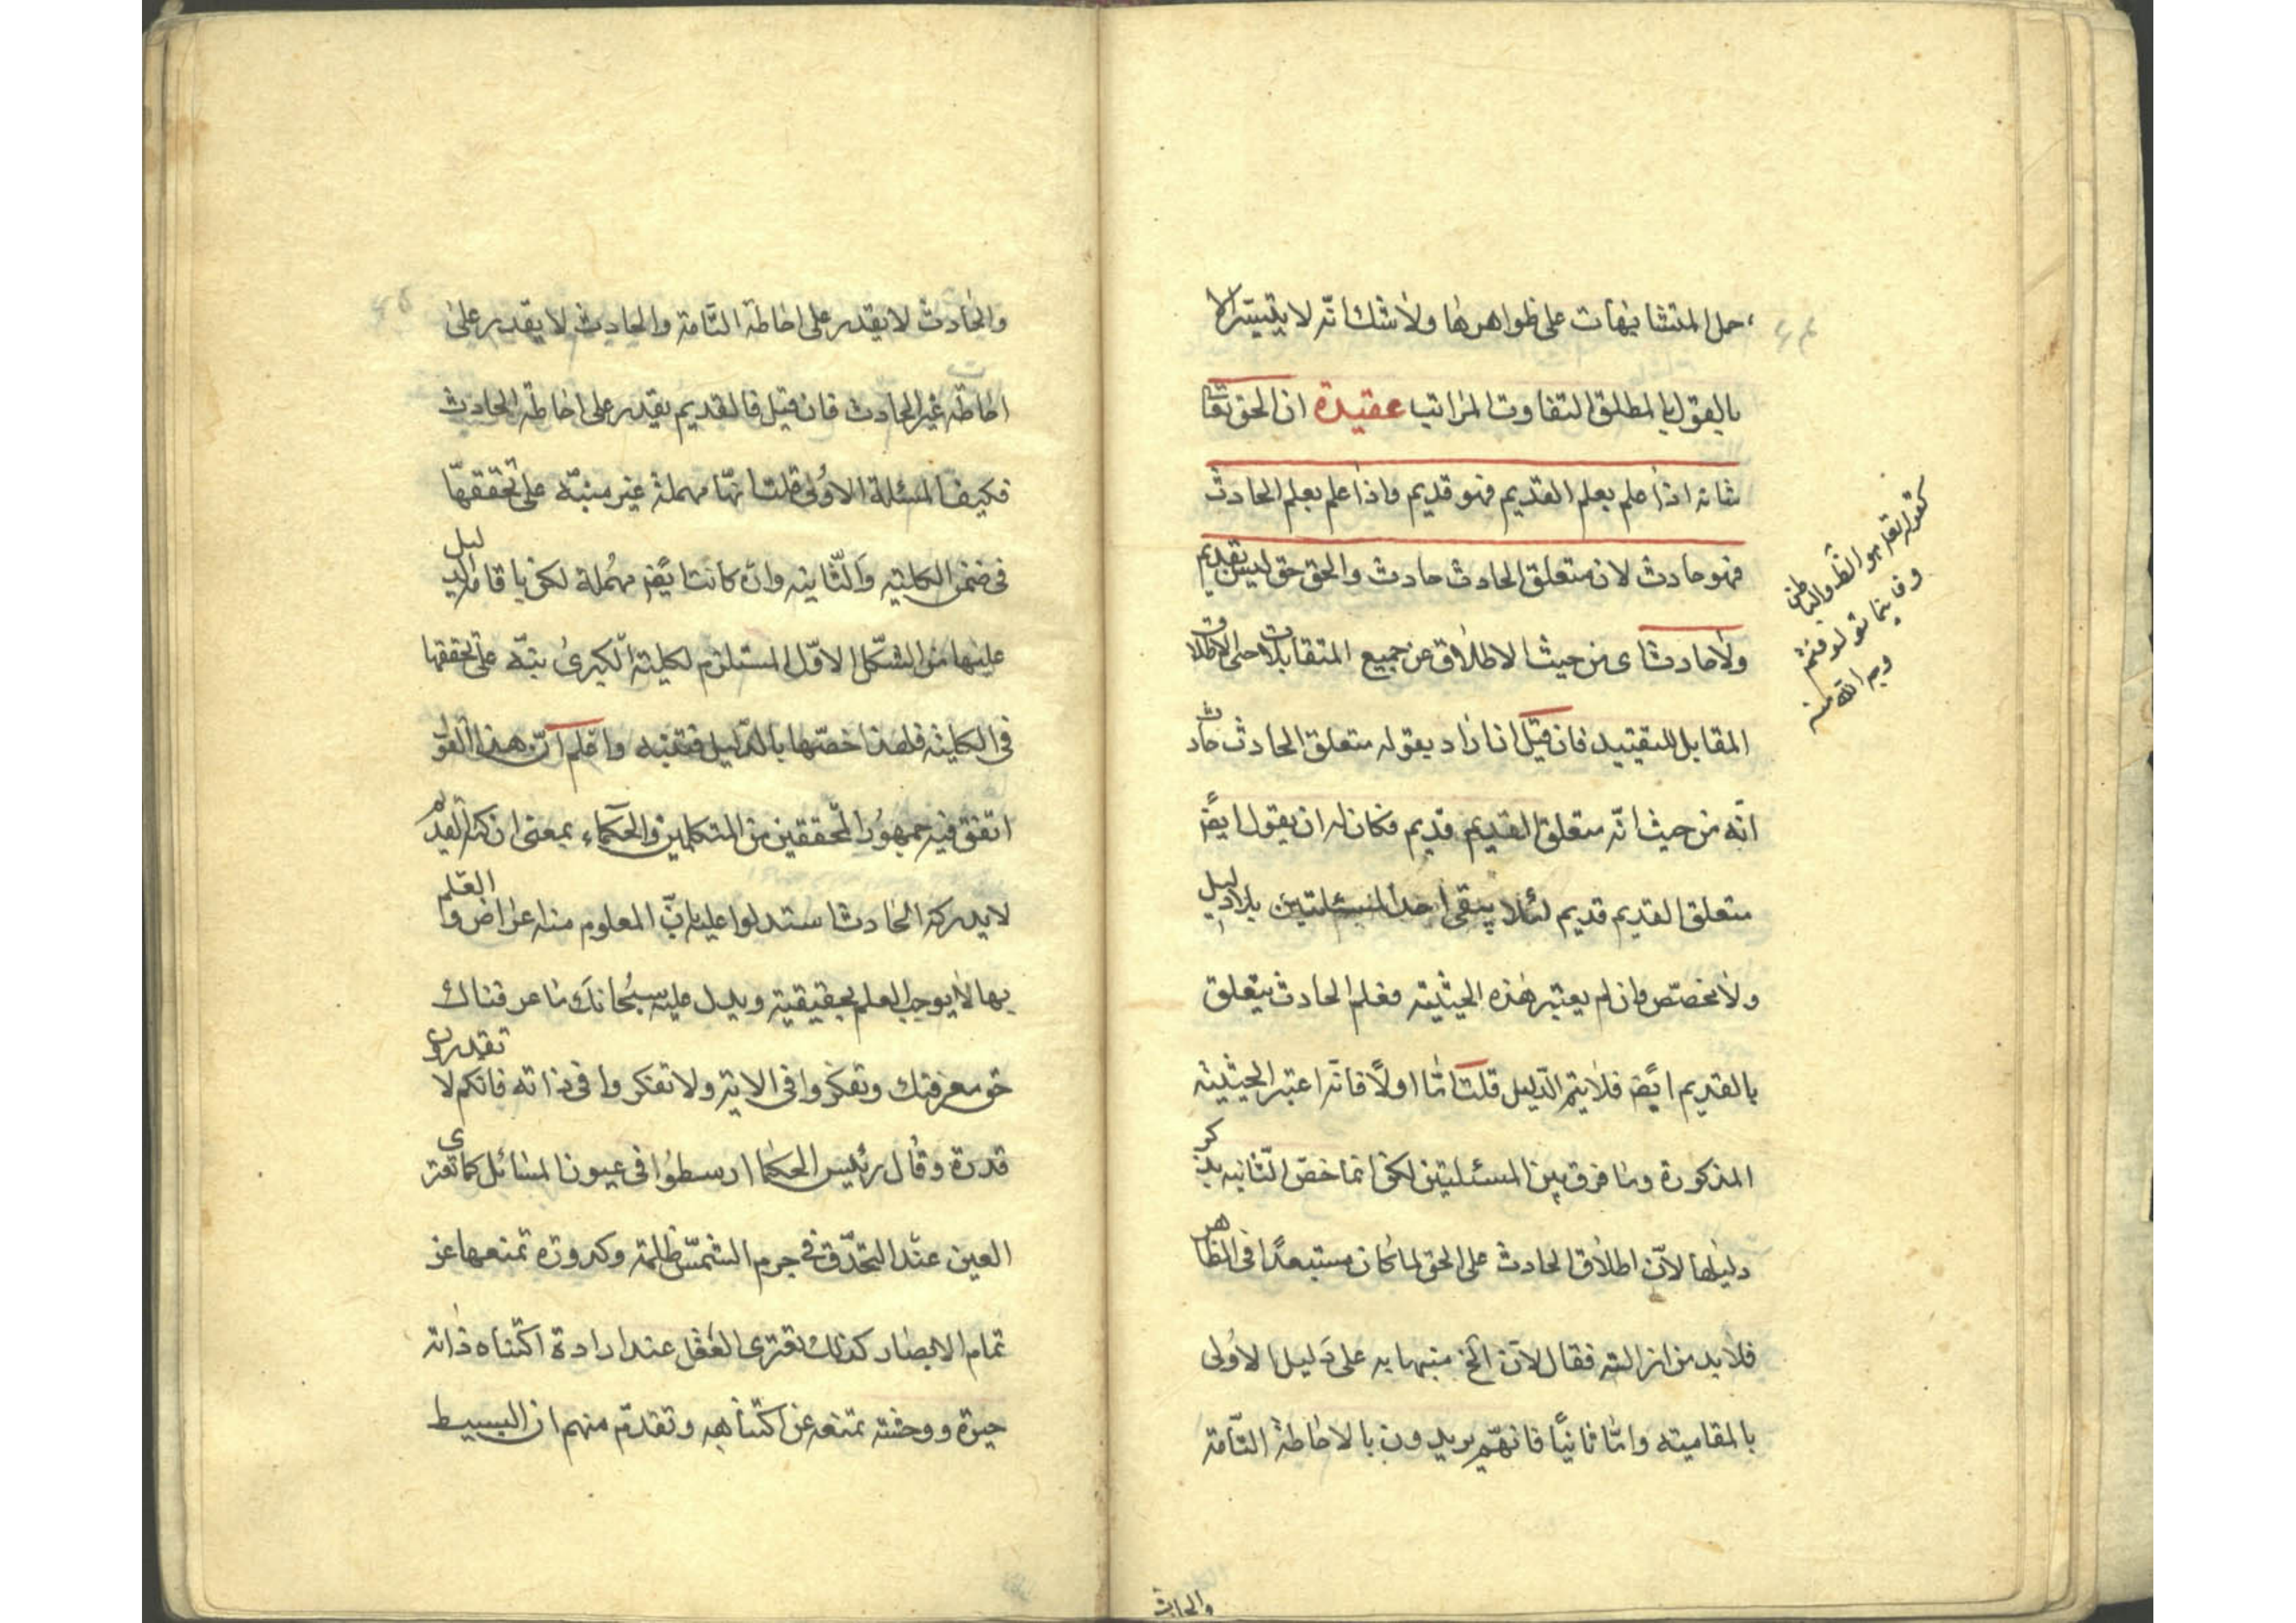 حمل المتشابهات على ظواهرها ولا شك انّه لا يتيسّر الا
بالقول بالمطلق المتفاوت المراتب عقيدة ان الحق تعا
شانه اذا علم بعلم القديم فهو قديم واذا علم بعلم الحادث
فهو حادث لان متعلق الحادث حادث والحق حق ليس بقديم
ولا حادث اى من حيث الاطلاق عن جميع المتقابلات حتى الاطلاق
المقابل للتقييد فان قيل ان اراد بقوله متعلق الحادث حادث
انّه من حيث انّه متعلق القديم قديم فكان له ان يقول ايضً
متعلق القديم قديم لئلا يبقى احد المسئلتين بلا دليل
ولا مخصّص وان لم يعتبر هذه الحيثية فعلم الحادث يتعلق
بالقديم ايضً فلا يتم الدّليل قلت امّا اولاً فانّه اعتبر الحيثية
المذكورة وما فرق بين المسئلتين لكن انما خصّ الثّانيه بذكر
دليلها لانّ اطلاق الحادث على الحق لما كان مستبعدًا فى الظاهر
فلا بد من ازالته فقال لانّ الخ منبها به على دليل الاولى
بالمقامية وامّا ثانيًا فانهّم يريدون بالاحاطة التّامّة
كقوله تعا هو الظ والباطن
وفاينما تولو فثم
وجه الله منه
والحادث
والحادث لا يقدر على احاطة التّامة والحادث لا يقدر على
احاطة غير الحادث فان قيل فالقديم يقدر على احاطة الحادث
فكيف المسئلة الاولى قلت انّها مهملة غير منبّه على تحققهّا
فى ضمن الكلية والثّانية وان كانت ايضً مهملة لكن باقامة الدليل
عليها من الشّكل الاوّل المستلزم لكلية الكبرى نبّه على تحققها
فى الكلية فلهذا خصّها بالدّليل فتنبه واعلم انّ هذا القول
اتفق فيه جمهور المحققين من المتكلمين والحكماء بمعنى ان كنه القديم
لا يدركه الحادث استدلوا عليه بانّ المعلوم منه اعراض والعلم
بها لا يوجب العلم بحقيقية ويدل عليه سبحانك ما عرفناك
حق معرفتك وتفكروا فى الاية ولا تفكروا فى ذاته فانكم لا تقدرون
قدرة وقال رئيس الحكما ارسطوا فى عيون المسائل كما تعترى
العين عند التحدّق فى جرم الشمس ظلمة وكدورة تمنعها عن
تمام الابصار كذلك تعترى العقل عند ارادة اكتناه ذاته
حيرة ووحشة تمتعه عن اكتناهه وتقدّم منهم ان البسيط